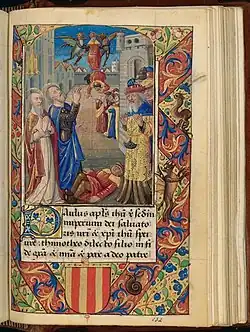 Paulus apls ihu x̄ sedm
imperium dei saluato
ris nri & xpi ihu spei
nre thimotheo dilecto filio in fi
de gra & mia & pax a deo patre